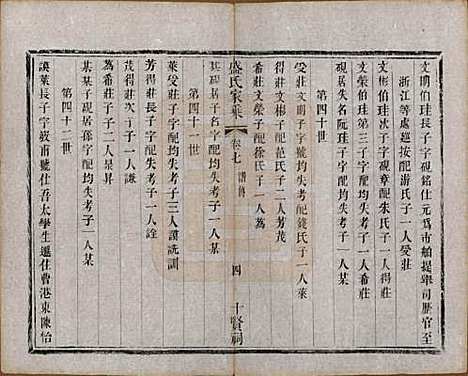 文明伯珪長子字硯銘仕元爲市舶提舉司歷官至
浙江等處廵按配游氏子一人受莊
文彬伯珪次子字硯章配朱氏子一人得莊
文榮伯珪第三子字配均失考子一人希莊
硯居失名阮珪子配均失考子一人某
第四十世
受莊文明子字號失考配錢氏子一人萊
得莊文彬子配范氏子二人芳茂
希莊文榮子配徐氏子一人爲
盛氏家乘
卷七 譜傳
四
十賢祠
某硯居子名字配均失考子一人某
第四十一世
萊受莊子字配均失考子三人謨洗訓
芳得莊長子字配均失考子一人詮
茂得莊次子子一人謙
爲希莊子字配均失考子一人某
某某子硯居孫字配均失考子一人某
第四十二世
謨萊長子字
甫號仕吾太學生遷仕曹港東陳怡